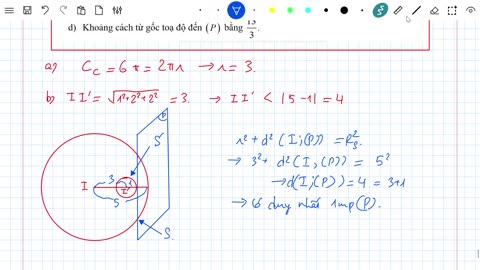 d) Khoảng cách từ gốc toạ độ đến (P) bằng 13/3.
a) C_C = 6π = 2πr → r = 3.
b) II' = √(1²+2²+2²) = 3. → II' < |5-1| = 4
r² + d²(I;(P)) = R_S².
→ 3² + d²(I,(P)) = 5²
→ d(I;(P)) = 4 = 3+1
→ Có duy nhất 1mp(P).
P
S'
3
1
I
I'
5
S.